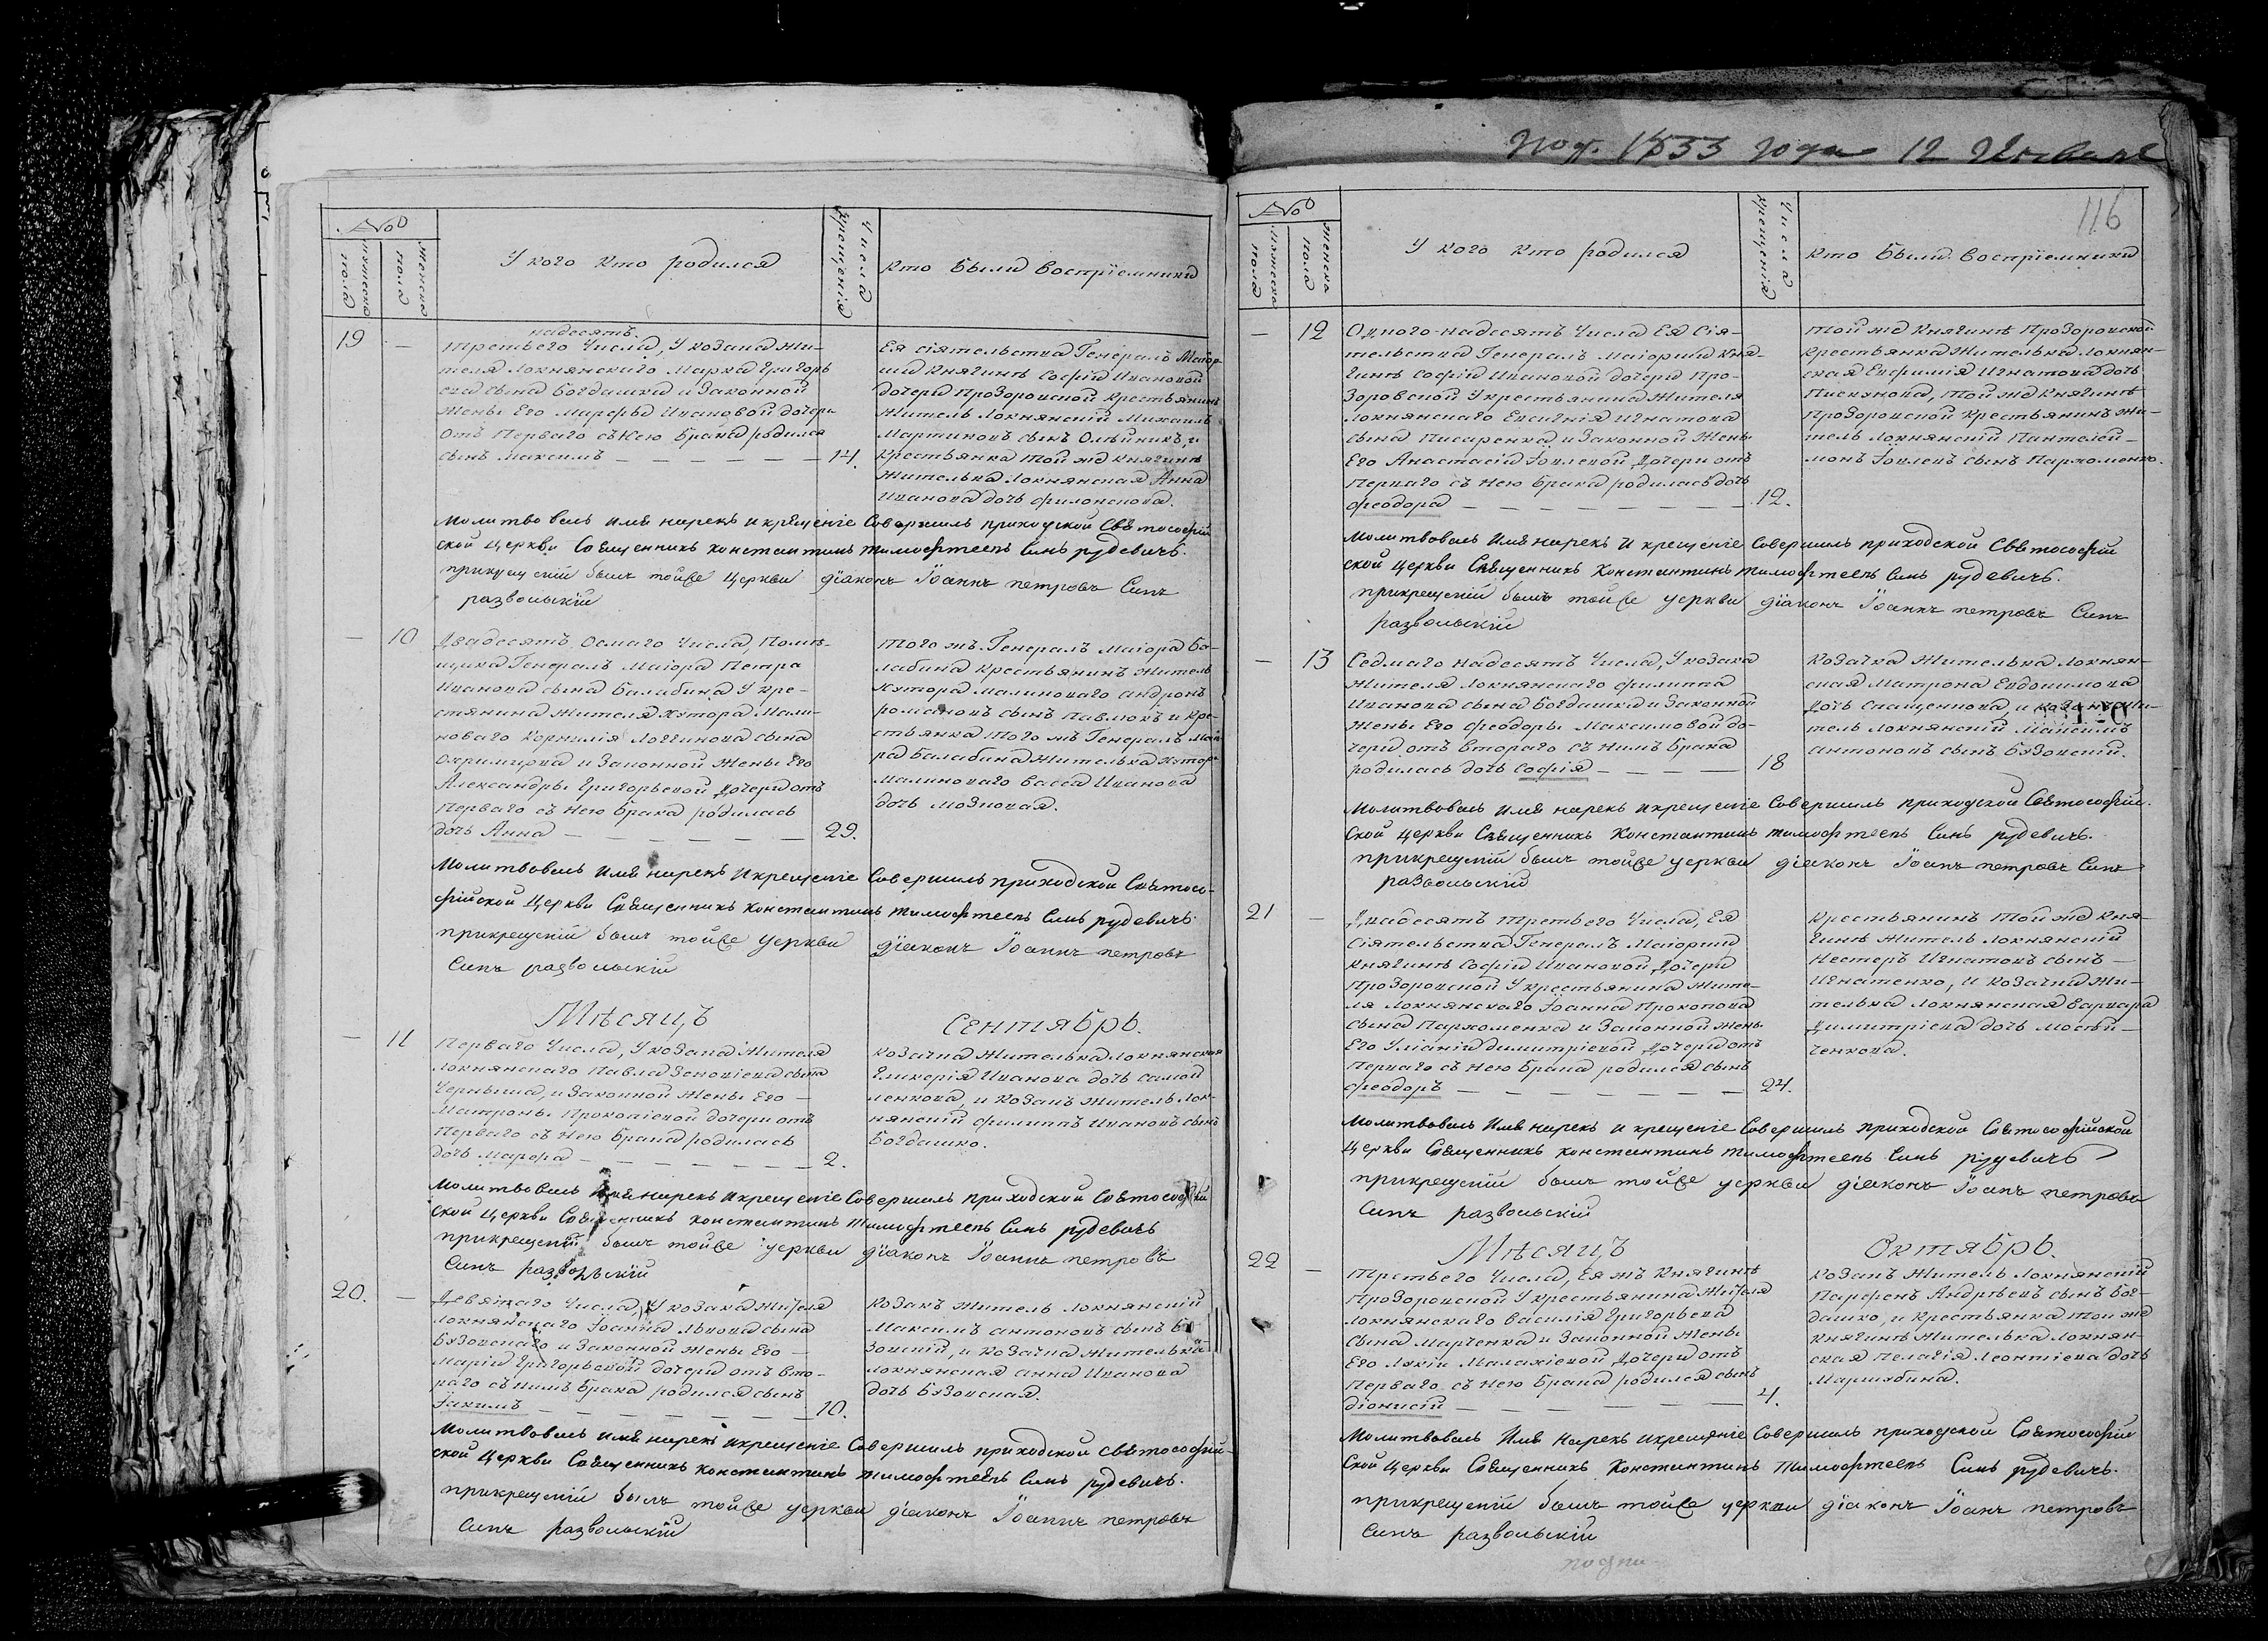 №
мужеска пола
женска пола
У кого кто родился
Числа крещенія
Кто были воспріемники
19
—
надесять
Третьего Числа, У козака Жи-
теля Локнянскаго Марка Григорь
ева сына Богдашка и Законной
Жены Его Марефы Ивановой дочери
отъ Перваго съ Нею Брака родился
сынъ Максимъ — — — — — — 14.
Ея Сіятельства Генералъ Маіор-
ши Княгинѣ Софіи Ивановой
дочери Прозоровской Крестьянинъ
Житель Локнянскій Михаилъ
Мартиновъ сынъ Олѣйникъ, и
Крестьянка Той же Княгинѣ
Жителька Локнянская Анна
Иванова дочь Филонскова.
Молитвовалъ Имя нарекъ и крещеніе Совершилъ приходской Свѣтософій
ской церкви Священникъ Константинъ Тимофѣевъ Синъ рудевичъ.
прикрещеній былъ тойже церкви діаконъ Іоаннъ петровъ Синъ
развольскій
—
10
Двадесять Осмаго Числа, Помѣ-
щика Генералъ Маіора Петра
Иванова сына Балабина У кре-
стянина Жителя Хутора Мали-
новаго Корнилія Логгинова сына
и Законной Жены Его
Александры Григорьевой Дочери отъ
Перваго съ Нею Брака родилась
дочь Анна — — — — — 29.
Того жъ Генералъ Маіора Ба-
лабина Крестьянинъ Житель
Хутора Малиноваго Андронъ
романовъ сынъ Павлюкъ и Кре-
стьянка Того жъ Генералъ Маіо-
ра Балабина Жителька Хутора
Малиноваго Васса Иванова
дочь Мозновая.
Молитвовалъ Имя нарекъ Икрещеніе Совершилъ приходской Свѣтосо-
фійской Церкви Священникъ Константинъ Тимофѣевъ Синъ рудевичъ.
прикрещеній былъ тойже церкви діаконъ Іоаннъ петровъ
Синъ развольскій
Мѣсяцъ Сентябрь.
—
11
Перваго Числа, У козака Жителя
Локнянскаго Павла Зеновіева сына
Черныша, и Законной Жены Его —
Матроны Прокопіевой дочери отъ
Перваго съ Нею Брака родилась
дочь Марефа — — — — — — 2.
Козачка Жителька Локнянская
Гликерія Иванова дочь Самой
ленкова, и Козакъ Житель Лок-
нянскій Филиппъ Ивановъ сынъ
Богдашко.
Молитвовалъ Имя нарекъ Икрещеніе Совершилъ приходской Свѣтософій
ской Церкви Священникъ Константинъ Тимофѣевъ Синъ рудевичъ
прикрещеній былъ тойже церкви діаконъ Іоаннъ петровъ
Синъ развольскій
20.
—
Девятаго Числа, У козака Жителя
Локнянскаго Іоанна Львова сына
Бузовскаго и Законной Жены Его —
Маріи Григорьевой дочери отъ вто-
раго съ нимъ Брака родился сынъ
Іакимъ — — — — — — — 10.
Козакъ Житель Локнянскій
Максимъ Антоновъ сынъ Бу-
зовскій, и Козачка Жителька
Локнянская Анна Иванова
дочь Бузовская.
Молитвовалъ Имя нарекъ икрещеніе Совершилъ приходской Свѣтософій-
ской Церкви Священникъ Константинъ Тимофѣевъ Синъ рудевичъ.
прикрещеній былъ тойже церкви діаконъ Іоаннъ петровъ
Синъ развольскій
Под. 1833 года 12 Января
116
№
мужеска пола
женска пола
У кого кто родился
Числа крещенія
Кто были воспріемники
—
12
Одного-надесять Числа Ея Сія-
тельства Генералъ Маіорши Кня-
гинѣ Софіи Ивановой дочери Про-
зоровской У крестьянина Жителя
Локнянскаго Евсигнія Игнатова
сына Писаренка и Законной Жены
Его Анастасіи Іовлевой Дочери отъ
Перваго съ Нею Брака родилась дочь
Феодора — — — — — — — 12.
Той же Княгинѣ Прозоровской
Крестьянка Жителька Локнян-
ская Евфимія Игнатова дочь
Пискунова, Той же Княгинѣ
Прозоровской Крестьянинъ Жи-
тель Локнянскій Пантелей-
монъ Іовлевъ сынъ Пархоменко.
Молитвовалъ Имя нарекъ И крещеніе Совершилъ приходской Свѣтософій
ской Церкви Священникъ Константинъ Тимофѣевъ Синъ рудевичъ.
прикрещеній былъ тойже церкви діаконъ Іоаннъ петровъ Синъ
развольскій
—
13
Седмаго надесять Числа, У козака
Жителя Локнянскаго Филиппа
Иванова сына Богдашки и Законной
Жены Его Феодоры Максимовой до-
чери отъ Втораго съ Нимъ Брака
родилась дочь Софія — — — — 18
Козачка Жителька Локнян-
ская Матрона Евдокимова
Дочь Спащенкова, и Козакъ Жи-
тель Локнянскій Максимъ
Антоновъ сынъ Бузовскій.
Молитвовалъ Имя нарекъ Икрещеніе Совершилъ приходской Свѣтософій.
ской церкви Священникъ Константинъ Тимофѣевъ Синъ рудевичъ.
прикрещеній былъ тойже церкви діаконъ Іоанъ петровъ Синъ
развольскій
21
—
Двадесять Третьего Числа, Ея
Сіятельства Генералъ Маіорши
Княгинѣ Софіи Ивановой Дочери
Прозоровской У крестьянина Жите-
ля Локнянскаго Іоанна Прокопова
сына Пархоменка и Законной Жены
Его Уліаніи Димитріевой Дочери отъ
Перваго съ Нею Брака родился сынъ
Феодоръ — — — — — — — 24.
Крестьянинъ Той же Кня-
гинѣ Житель Локнянскій
Нестеръ Игнатовъ сынъ —
Игнатенко, И Козачка Жи-
телька Локнянская Варвара
Димитріева дочь Мосѣй-
ченкова.
Молитвовалъ Имя нарекъ и крещеніе Совершилъ приходской Свѣтософійской
церкви Священникъ Константинъ Тимофѣевъ Синъ рудевичъ
прикрещеній былъ тойже церкви діаконъ Іоанъ петровъ
Синъ развольскій
Мѣсяцъ Октябрь.
22
—
Третьего Числа, Ея жъ Княгинѣ
Прозоровской У крестьянина Жителя
Локнянскаго Василія Григорьева
сына Марченка и Законной Жены
Его Лукіи Малахіевой Дочери отъ
Перваго съ Нею Брака родился сынъ
Діонисій — — — — — — — 4.
Козакъ Житель Локнянскій
Парфенъ Андрѣевъ сынъ Бог-
дашко, и Крестьянка Той же
Княгинѣ Жителька Локнян-
ская Пелагія Леонтіева дочь
Молитвовалъ Имя Нарекъ Икрещеніе Совершилъ приходской Свѣтософій
Ской Церкви Священникъ Константинъ Тимофѣевъ Синъ рудевичъ.
прикрещеній былъ тойже церкви діаконъ Іоанъ петровъ
Синъ развольскій